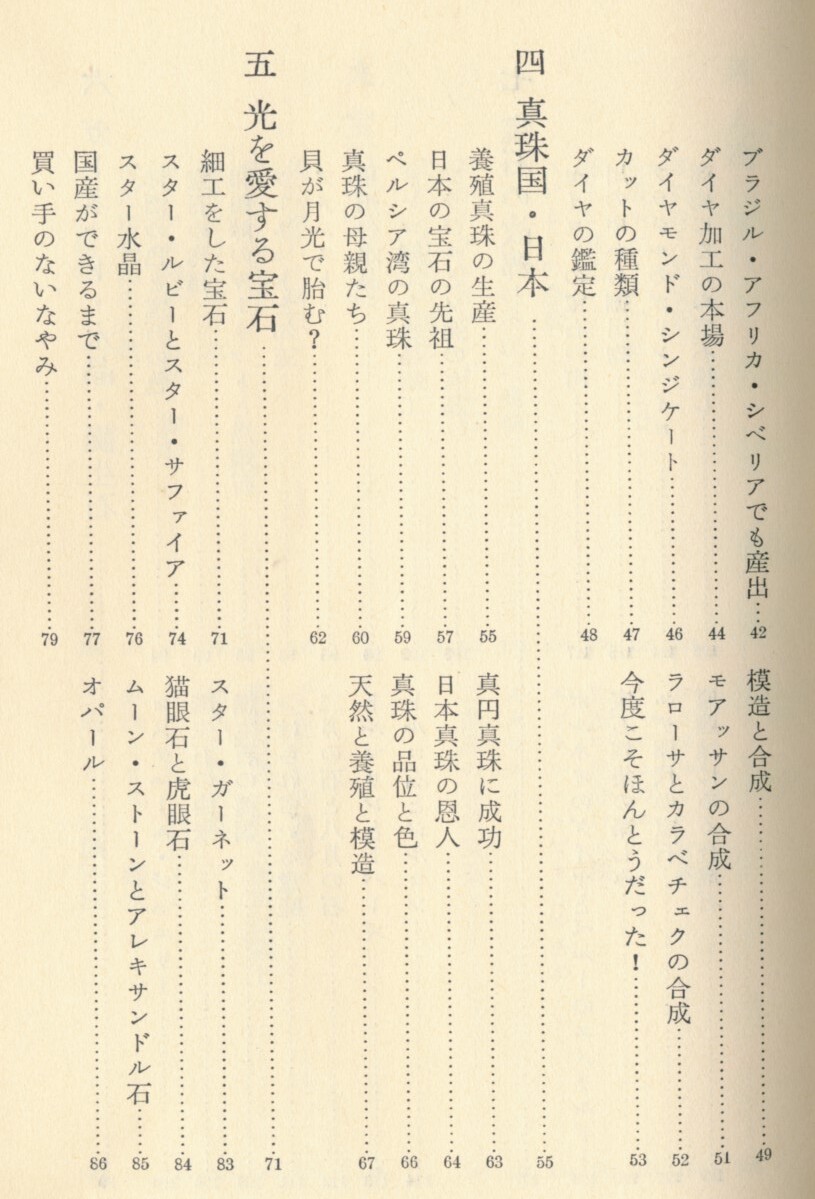 ブラジル・アフリカ・シベリアでも産出…42
ダイヤ加工の本場…44
ダイヤモンド・シンジケート…46
カットの種類…47
ダイヤの鑑定…48
模造と合成…49
モアッサンの合成…51
ラローサとカラベチェクの合成…52
今度こそほんとうだった!…53
四 真珠国・日本…55
養殖真珠の生産…55
日本の宝石の先祖…57
ペルシア湾の真珠…59
真珠の母親たち…60
貝が月光で胎む?…62
真円真珠に成功…63
日本真珠の恩人…64
真珠の品位と色…66
天然と養殖と模造…67
五 光を愛する宝石…71
細工をした宝石…71
スター・ルビーとスター・サファイア…74
スター水晶…76
国産ができるまで…77
買い手のないなやみ…79
スター・ガーネット…83
猫眼石と虎眼石…84
ムーン・ストーンとアレキサンドル石…85
オパール…86